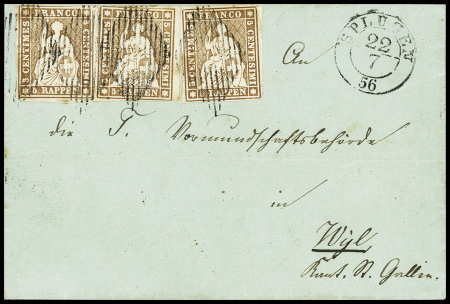 FRANCO FRANCO FRANCO
5 CENTIMES 5 CENTESIMI 5 CENTIMES 5 CENTESIMI 5 CENTIMES 5 CENTESIMI
5 RAPPEN 5 RAPPEN 5 RAPPEN
SPLÜGEN
22
7
56
An
die T. Vormundschaftsbehörde
in
Wyl
Kant. St. Gallen.